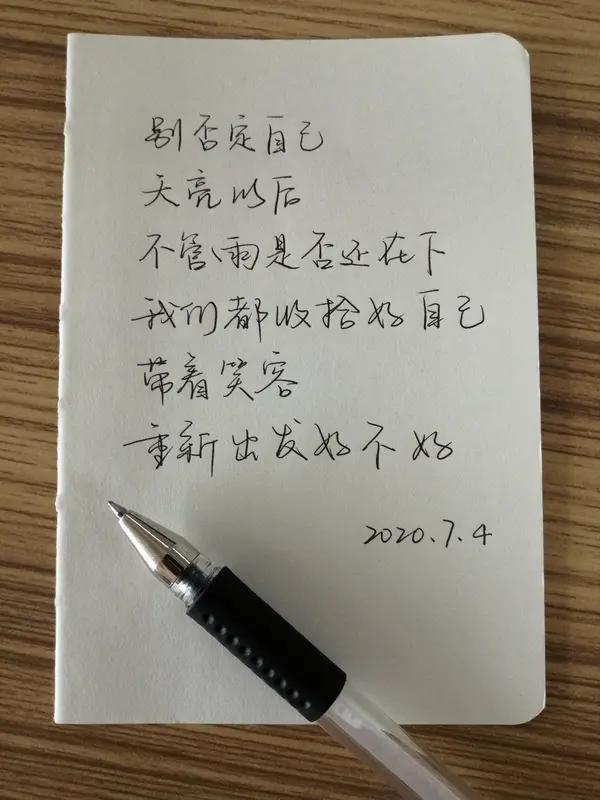 别否定自己
天亮以后
不管雨是否还在下
我们都收拾好自己
带着笑容
重新出发好不好
2020.7.4